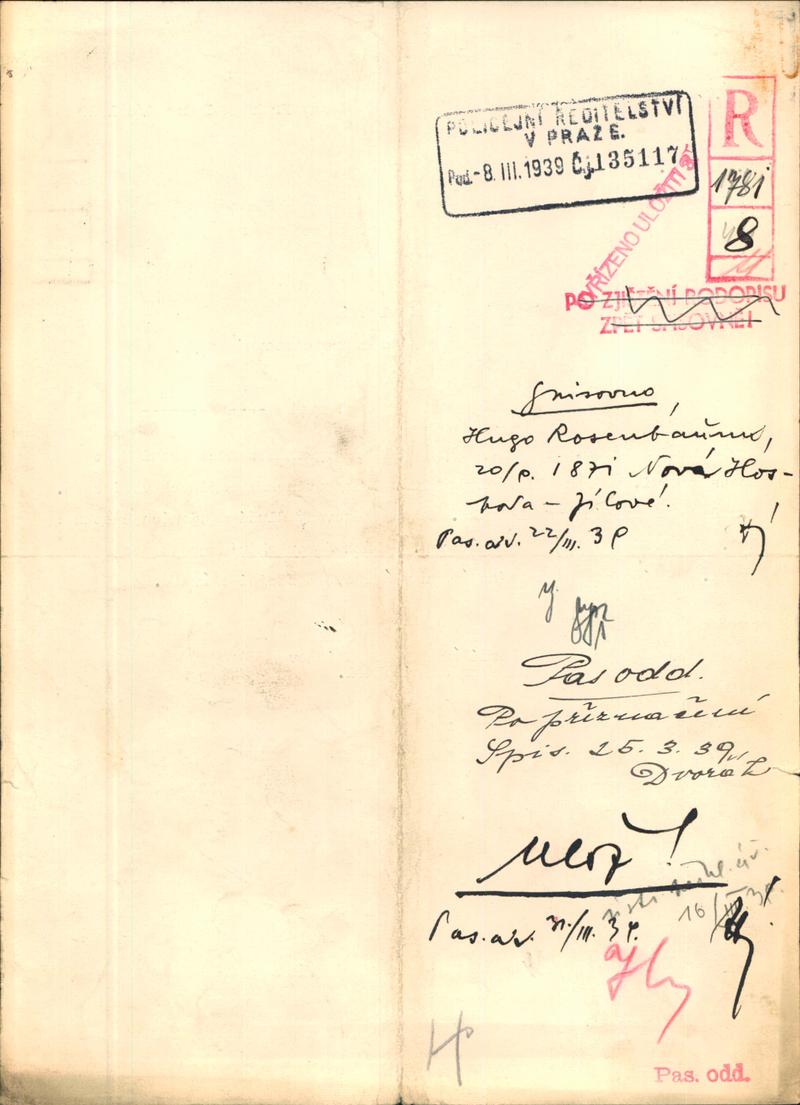 POLICEJNÍ ŘEDITELSTVÍ
V PRAZE.
Pod. -8. III. 1939 Čj. 135117
R
1781
8
VYŘÍZENO ULOŽITI
PO ZJIŠTĚNÍ PODPISU
ZPĚT SPISOVNĚ!
Spisovno,
Hugo Rosenbaum,
1871 Nová Hos-
Jílové.
Pas. 22/III. 39
Pas odd.
Po přeznačení
Spis. 25. 3. 39
Dvořák
Ulož!
16/III. 39
Pas. 31/III. 39.
Pas. odd.